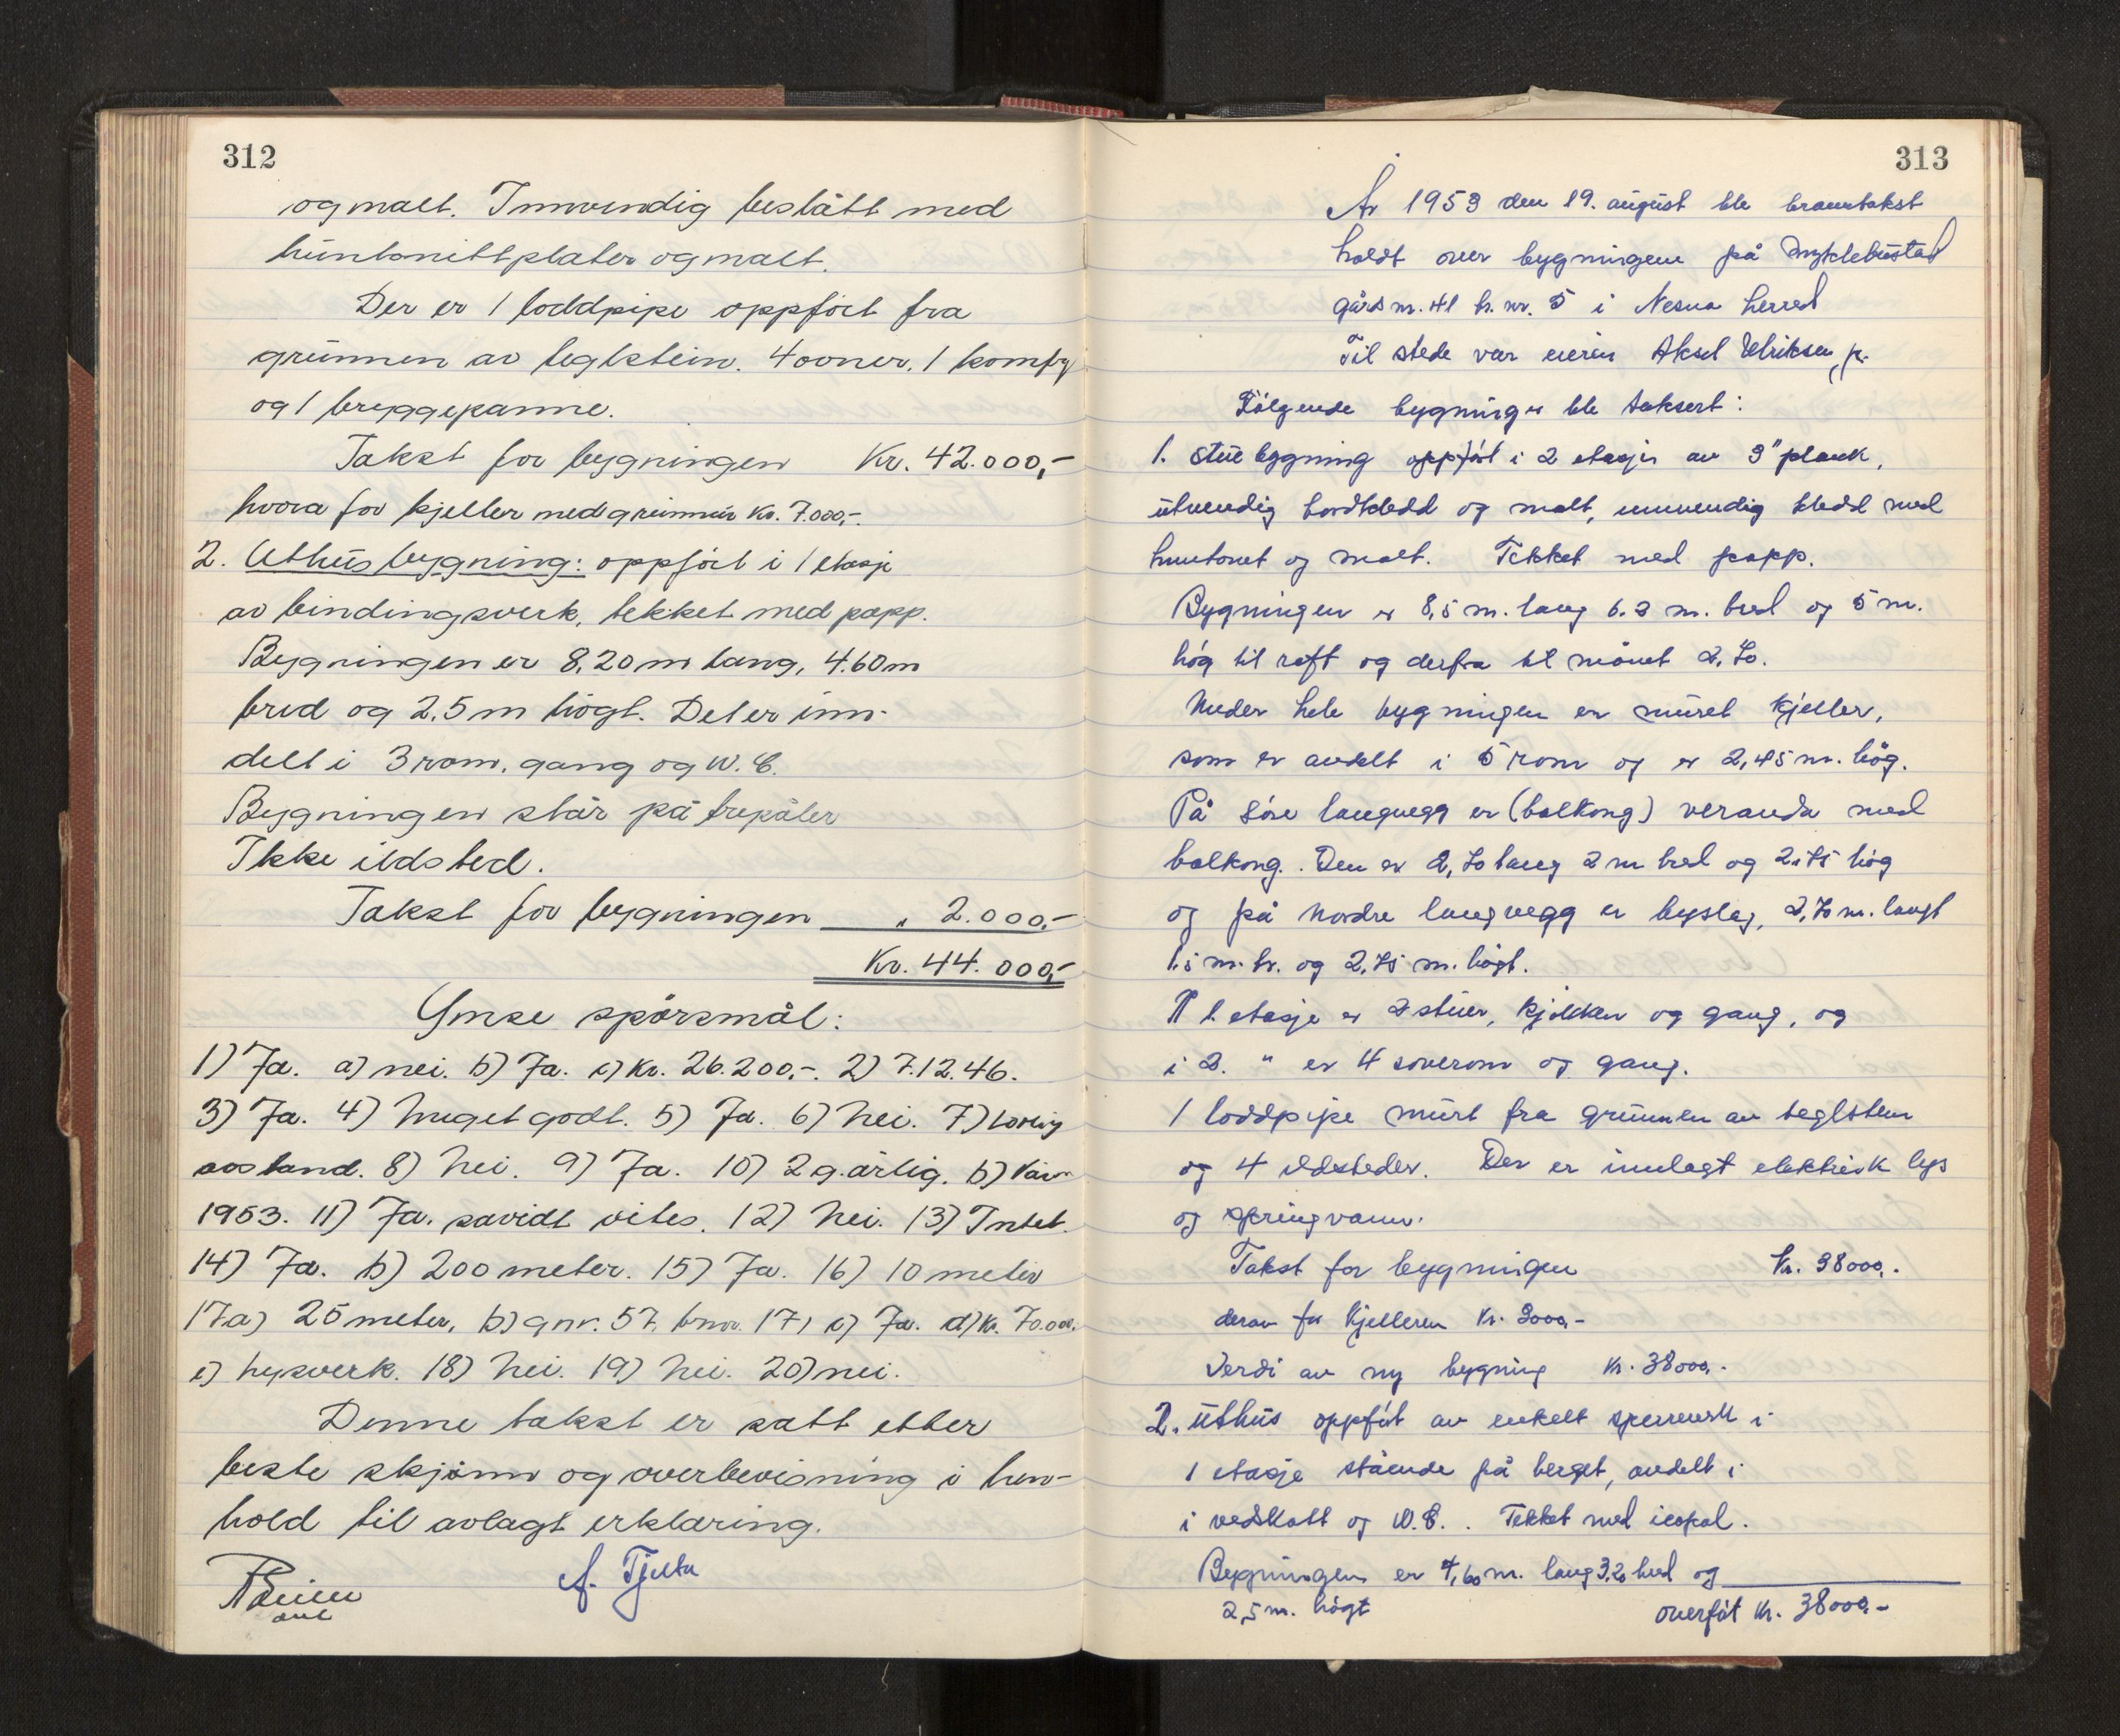 312
og malt. Innvendig beslått med
huntonittplater og malt.
Der er 1 loddpipe oppført fra
grunnen av teglstein. 4 ovner. 1 komfyr
og 1 bryggepanne.
Takst for bygningen Kr. 42.000,-
hvorav for kjeller med grunnmur Kr. 7.000,-.
2. Uthusbygning: oppført i 1 etasje
av bindingsverk, tekket med papp.
Bygningen er 8,20 m lang, 4.60 m
bred og 2,5 m högt. Det er inn-
delt i 3 rom, gang og W.C.
Bygningen står på trepåler
Ikke ildsted.
Takst for bygningen " 2.000,-
Kr. 44.000,-
Ymse spörsmål:
1) Ja. a) nei. b) Ja. c) Kr. 26.200,-. 2) 7.12.46.
3) Ja. 4) Meget godt. 5) Ja. 6) Nei. 7) Lovlig
avstand. 8) Nei. 9) Ja. 10) 2 g. årlig. b) Vår
1953. 11) Ja. såvidt vites. 12) Nei. 13) Intet.
14) Ja. b) 200 meter. 15) Ja. 16) 10 meter
17a) 25 meter, b) gnr. 57, bnr. 17, c) Ja. d) Kr. 70.000.
e) 18) Nei. 19) Nei. 20) nei.
Denne takst er satt etter
beste skjönn og overbevisning i hen-
hold til avlagt erklæring.
A. Tjetta
313
År 1953 den 19. august ble branntakst
holdt over bygningene på Myklebustad
gårdsnr. 41 br. nr. 5 i Nesna herred
Til stede var eieren Aksel Ulriksen, jr.
Fölgende bygninger ble taksert:
1. Stuebygning oppfört i 2 etasjer av 3" plank,
utvendig bordkledd og malt, innvendig kledd med
huntonet og malt. Tekket med papp.
Bygningen er 8,5 m. lang 6.3 m. bred og 5 m.
hög til raft og derfra til mönet 2,70.
Under hele bygningen er muret kjeller,
som er avdelt i 5 rom og er 2,45 m. hög.
På söre langvegg er (balkong) veranda med
balkong. Den er 2,70 lang 2 m bred og 2.75 hög
og på nordre langvegg er bislag, 2,70 m. langt
1.5 m. br. og 2,75 m. högt.
I 1. etasje er 2 stuer, kjökken og gang, og
i 2. " er 4 soverom og gang.
1 loddpipe murt fra grunnen av teglsten
og 4 ildsteder. Der er innlagt elektrisk lys
og springvann.
Takst for bygningen Kr. 38000,-
derav for kjelleren Kr. 3000,-
Verdi av ny bygning Kr. 38000,-
2. Uthus oppfört av enkelt sperreverk i
1 etasje stående på berget, avdelt i
i vedskott og W.C. Tekket med icopal.
Bygningen er 4,60 m. lang 3,20 bred og
2,5 m. högt overfört Kr. 38000,-